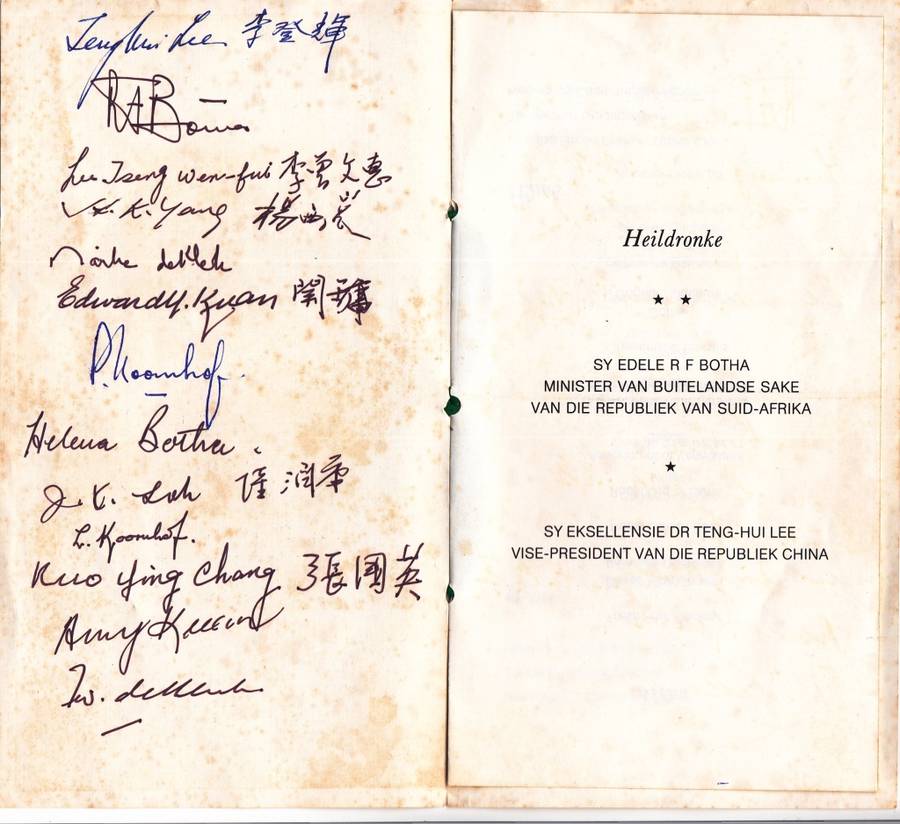 Teng-hui Lee 李登輝
RF Botha
Lee Tseng wen-fui 李曾文惠
H. K. Yang 楊西崑
Marike de Klerk
Edward Y. Kuan 關鏞
P. Koornhof.
Helena Botha.
J. K. Loh 陸潤康
L. Koornhof.
Kuo Ying Chang 張國英
Amy Kuan
F.W. de Klerk
Heildronke
★ ★
SY EDELE R F BOTHA
MINISTER VAN BUITELANDSE SAKE
VAN DIE REPUBLIEK VAN SUID-AFRIKA
★
SY EKSELLENSIE DR TENG-HUI LEE
VISE-PRESIDENT VAN DIE REPUBLIEK CHINA